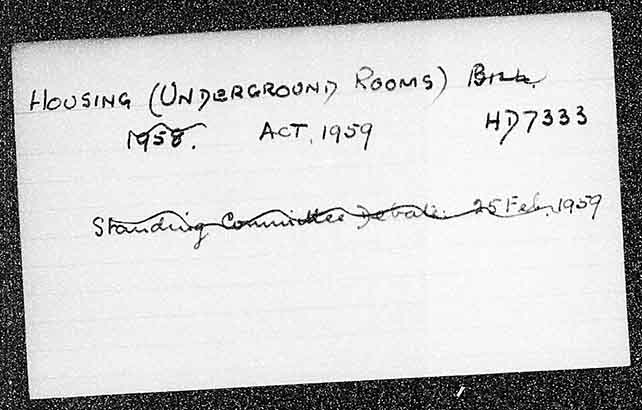 HOUSING (UNDERGROUND ROOMS) BILL
1958. ACT, 1959 HD7333
Standing Committee Debate. 25 Feb. 1959